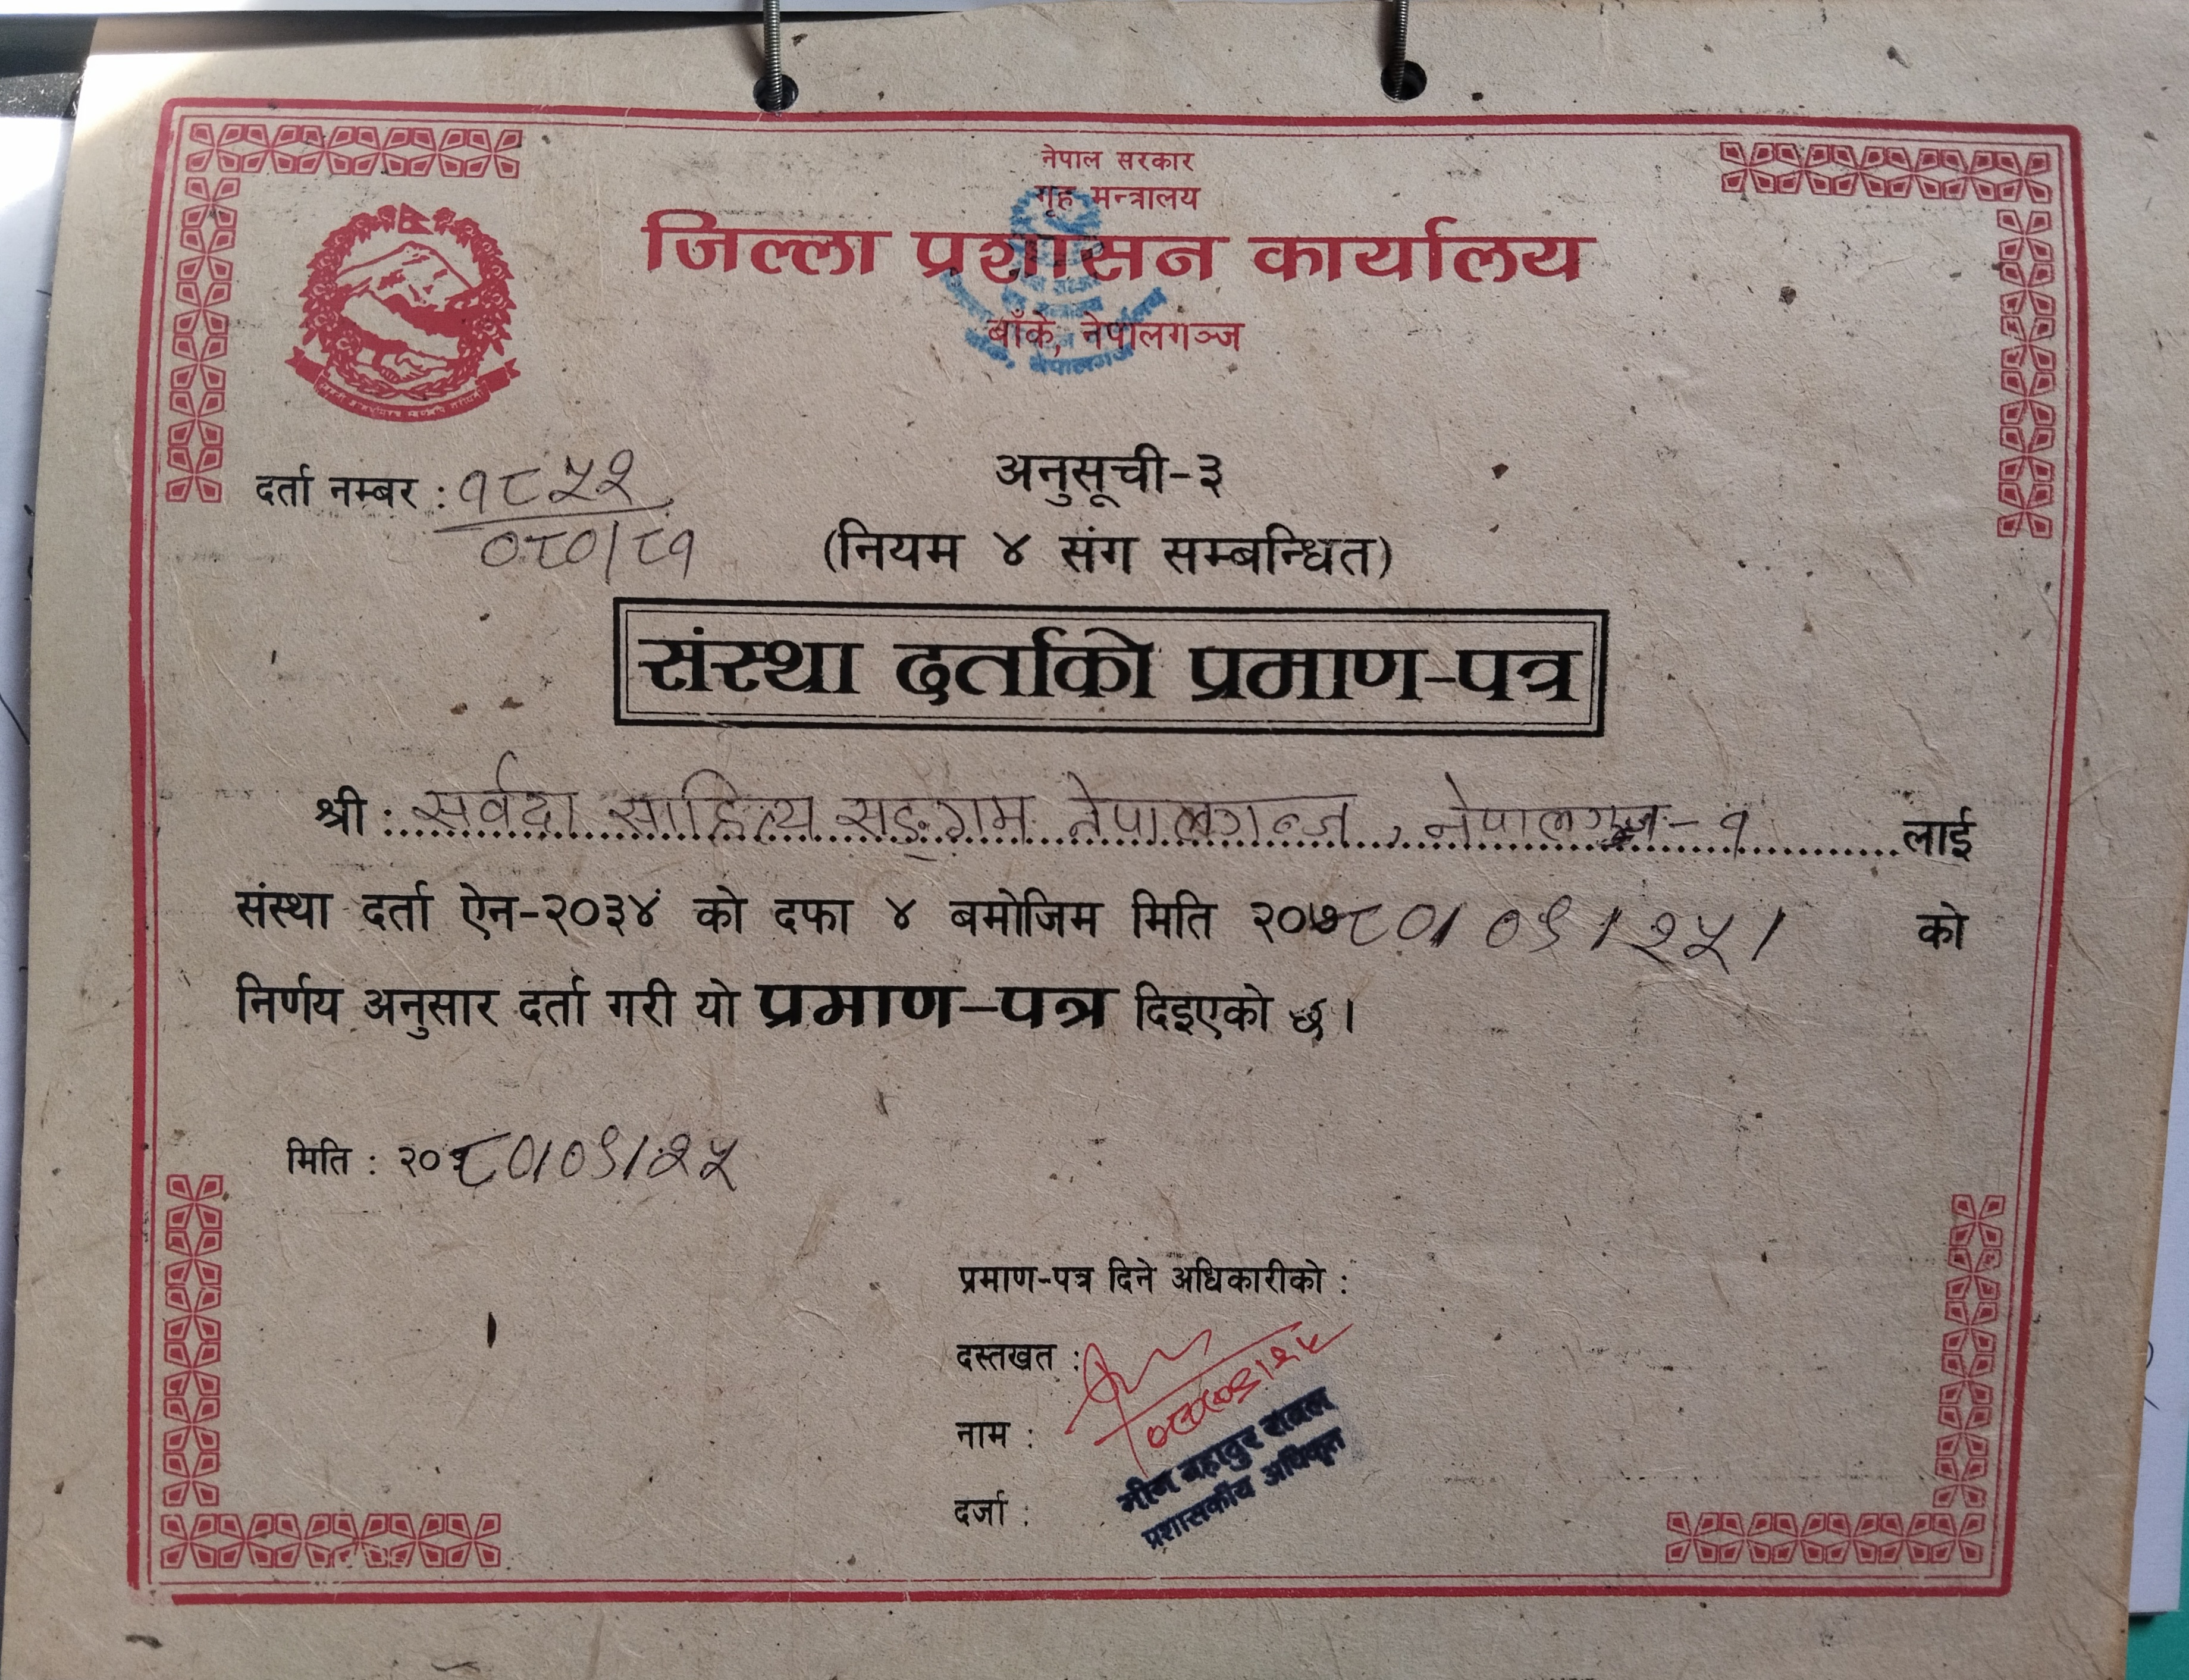 नेपाल सरकार
गृह मन्त्रालय
जिल्ला प्रशासन कार्यालय
बाँके, नेपालगञ्ज
दर्ता नम्बर : १८५२
०८०/८१
अनुसूची-३
(नियम ४ संग सम्बन्धित)
संस्था दर्ताको प्रमाण-पत्र
श्री : सर्वदा साहित्य सङ्गम नेपालगन्ज, नेपालगन्ज-१ लाई
संस्था दर्ता ऐन-२०३४ को दफा ४ बमोजिम मिति २०८०/०९/२५/ को
निर्णय अनुसार दर्ता गरी यो प्रमाण-पत्र दिइएको छ।
मिति : २०८०/०९/२५
प्रमाण-पत्र दिने अधिकारीको :
दस्तखत :
०८०/०९/२५
नाम :
बहादुर रावल
दर्जा :
प्रशासकीय अधिकृत